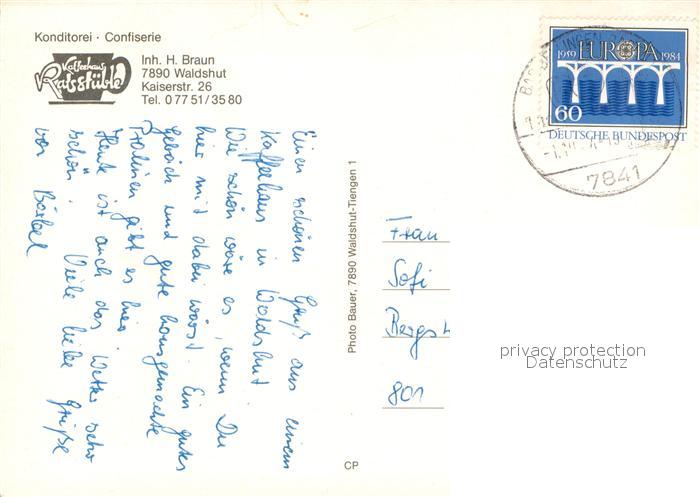 Konditorei · Confiserie
Kaffeehaus
Ratsstüble
Inh. H. Braun
7890 Waldshut
Kaiserstr. 26
Tel. 0 77 51 / 35 80
Einen schönen Gruß aus einem
Kaffeehaus in Waldshut.
Wie schön wäre es, wenn Du
hier mit dabei wärst. Ein gutes
Gebäck und gute hausgemachte
Pralinen gibt es hier.
Heute ist auch das Wetter sehr
schön. Viele liebe Grüße
von Bärbel
Photo Bauer, 7890 Waldshut-Tiengen 1
CP
1959 EUROPA 1984
60
DEUTSCHE BUNDESPOST
7841
Frau
Sofi
Bergst
801
privacy protection
Datenschutz